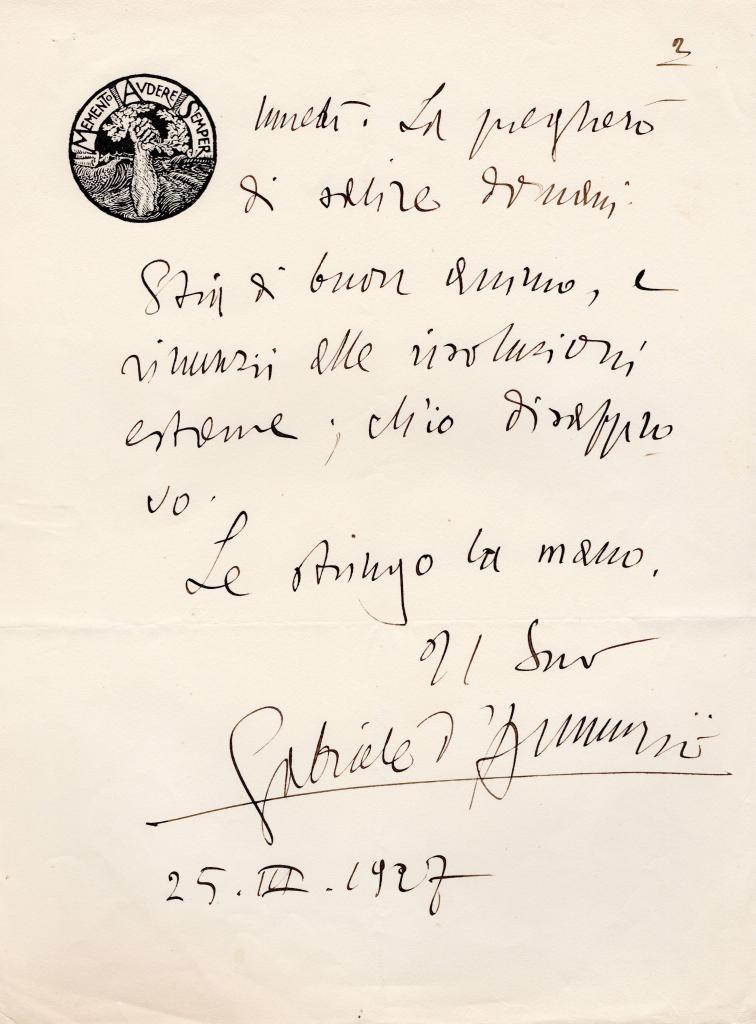 2
MEMENTO AVDERE SEMPER
lunedì. La pregherò
di salire domani.
Stia di buon animo, e
rinunzii alle risoluzioni
estreme; ch'io disappro
vo.
Le stringo la mano.
Il Suo
Gabriele d'Annunzio
25.III.1927